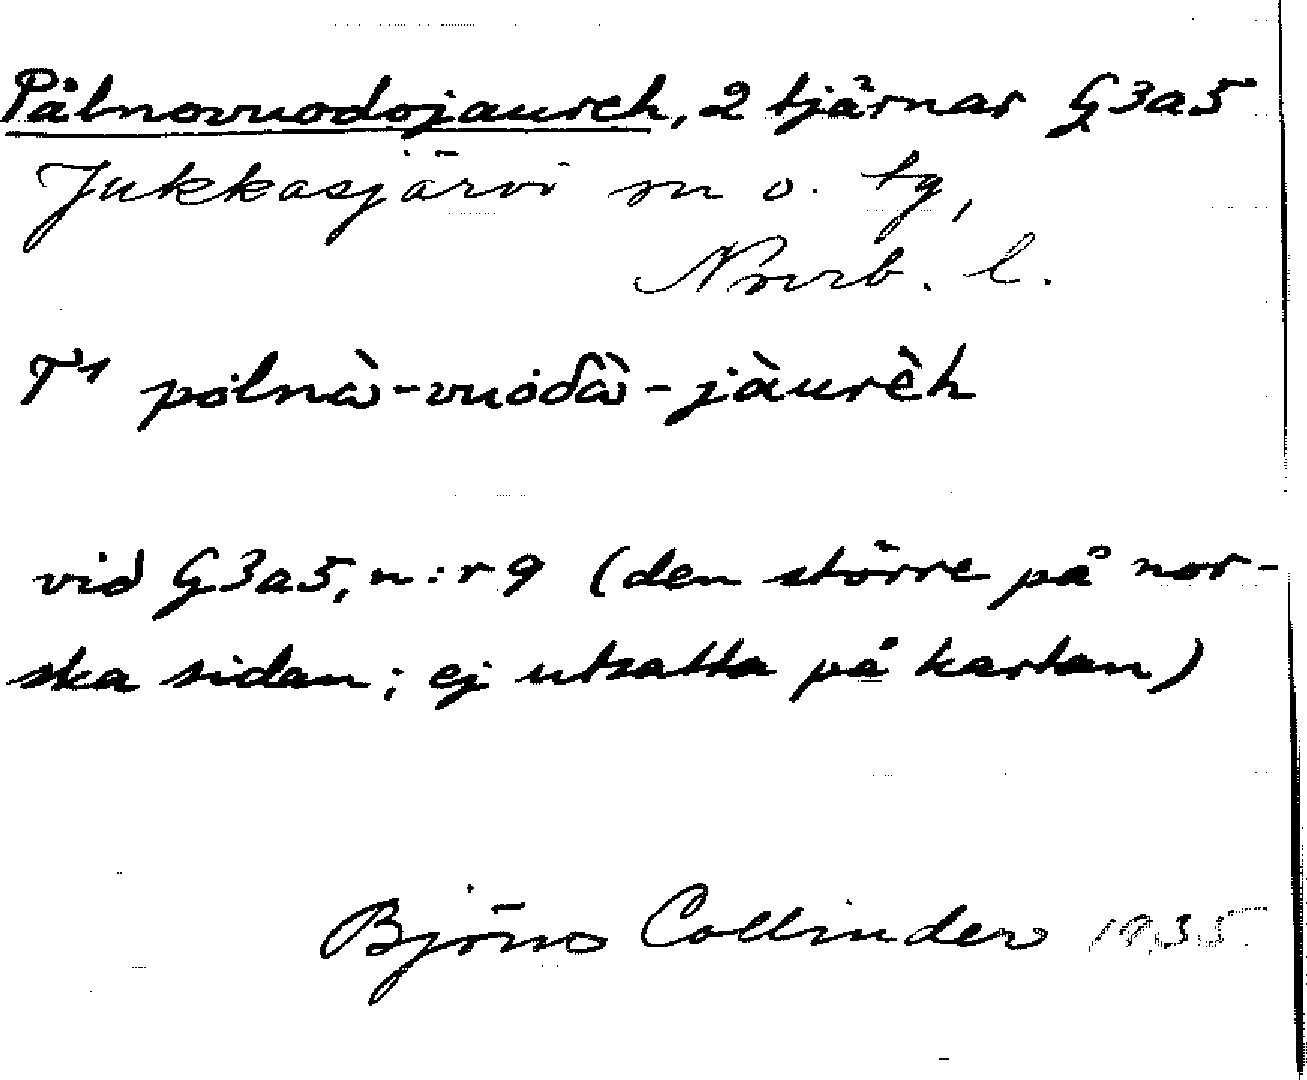 Pålnovuodojaureh, 2 tjärnar G3a5
Jukkasjärvi sn o. tg,
Norrb. l.
T¹ pȯlnà-vuȯđà-jàurèh
vid G3a5, n:r 9 (den större på nor-
ska sidan; ej utsatta på kartan)
Björn Collinder 1935